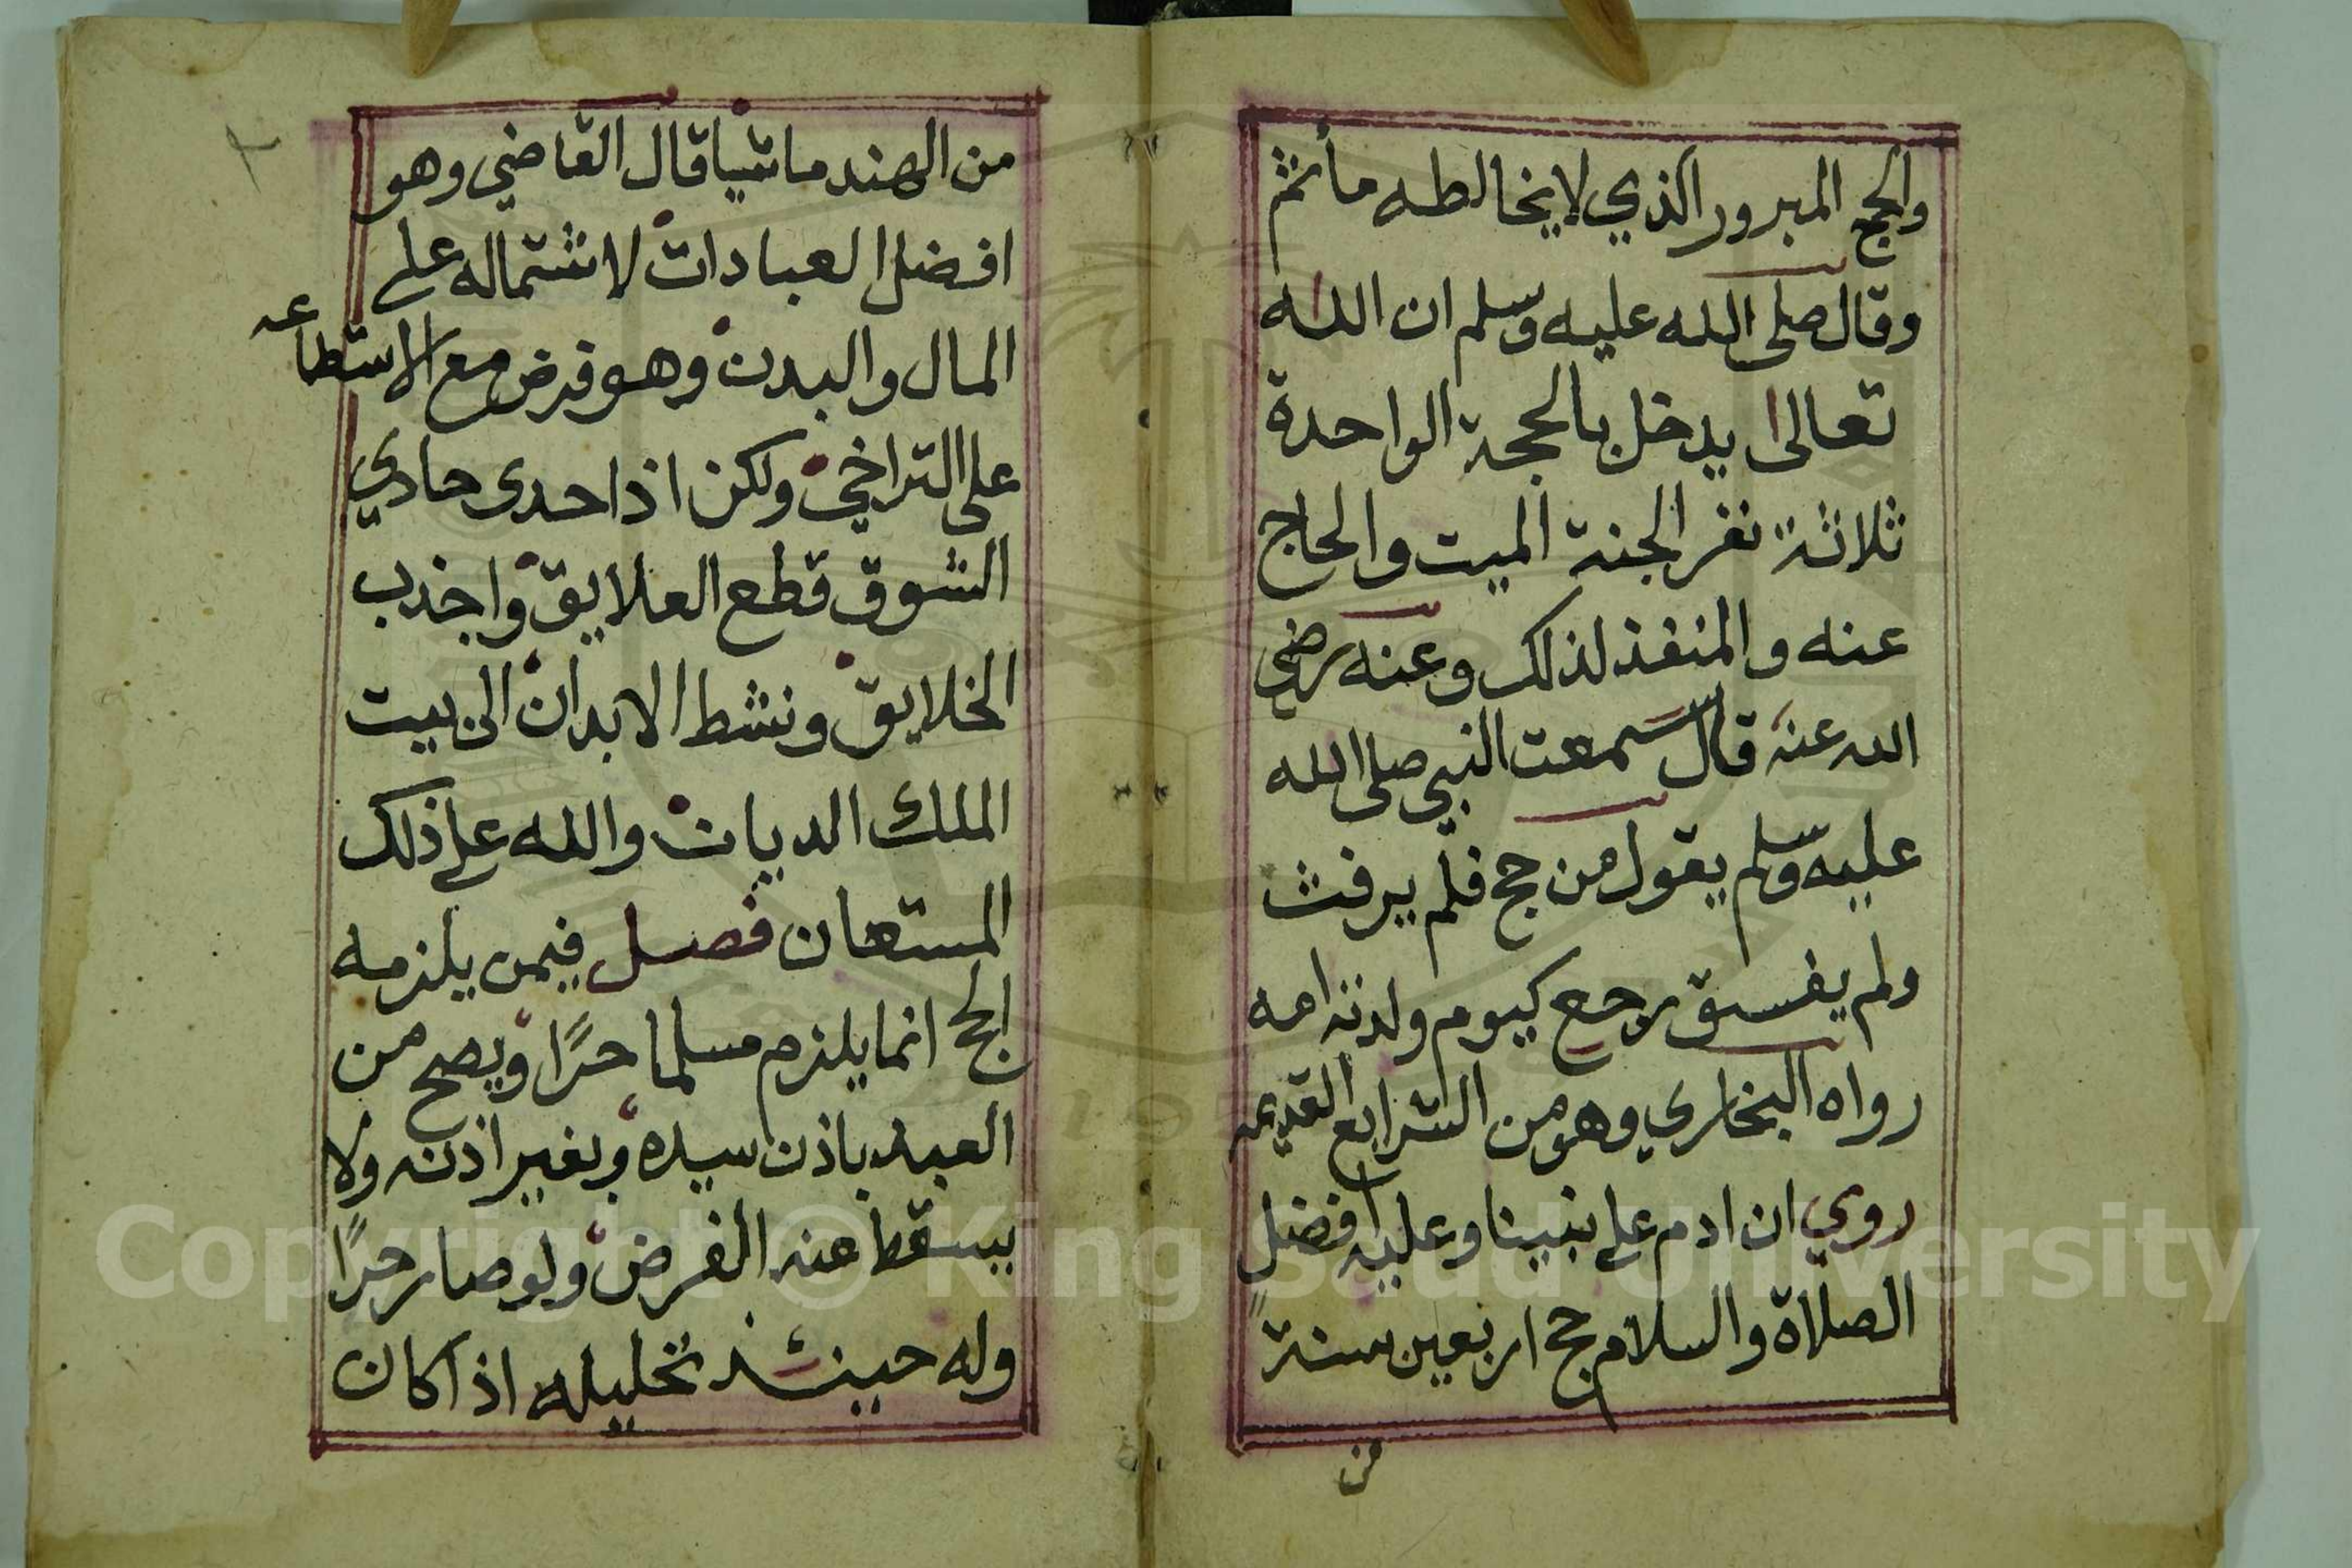 والحج المبرور الذي لا يخالطه مأثم
وقال صلى الله عليه وسلم ان الله
تعالى يدخل بالحجة الواحدة
ثلاثة نفر الجنة الميت والحاج
عنه والمنفذ لذلك وعنه رضي
الله عنه قال سمعت النبي صلى الله
عليه وسلم يقول من حج فلم يرفث
ولم يفسق رجع كيوم ولدته امه
رواه البخاري وهو من الشرايع القديمه
روي ان ادم على نبينا وعليه افضل
الصلاة والسلام حج اربعين سنة
من
٢
من الهند ماشيا قال القاضي وهو
افضل العبادات لاشتماله على
المال والبدن وهو فرض مع الاستطاعه
على التراخي ولكن اذا حدى حادي
الشوق قطع العلايق واجذب
الخلايق ونشط الابدان الى بيت
الملك الديان والله على ذلك
المستعان فصل فيمن يلزمه
الحج انما يلزم مسلما حرًا ويصح من
العبد باذن سيده وبغير اذنه ولا
يسقط عنه الفرض ولو صار حرًا
وله حينئذ تحليله اذا كان
Copyright © King Saud University